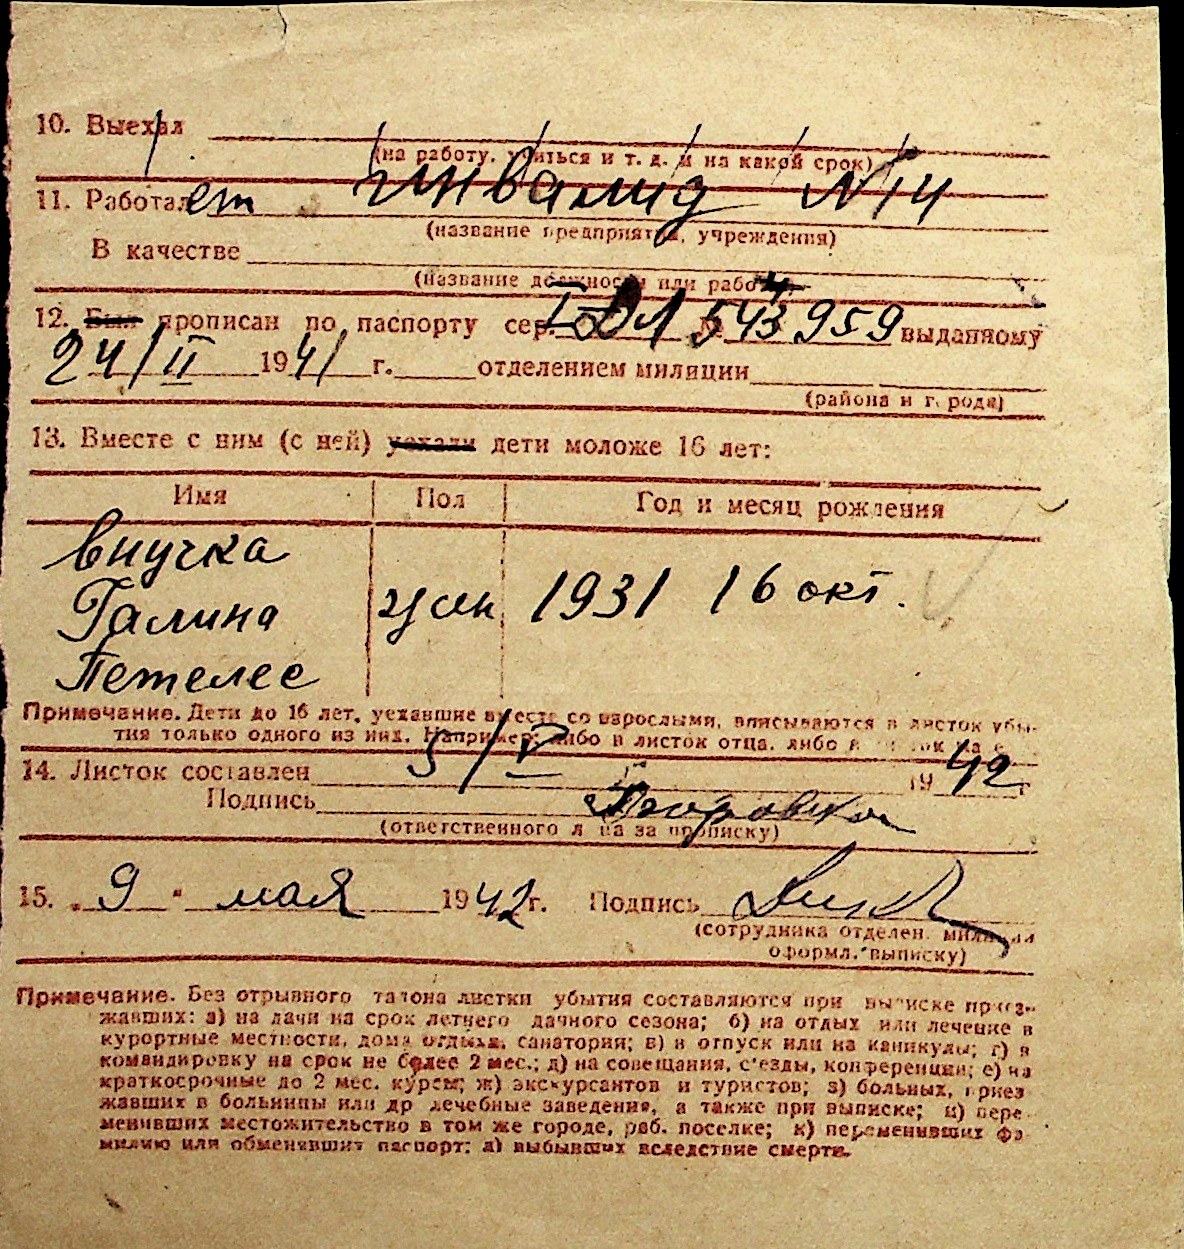 10. Выехал
(на работу, учиться и т. д. и на какой срок)
11. Работает Инвалид N 14
(название предприятия, учреждения)
В качестве
(название должности или работы)
12. Был прописан по паспорту сер. № 543959 выданному
24/II 1941 г. отделением милиции
(района и города)
13. Вместе с ним (с ней) уехали дети моложе 16 лет:
Имя Пол Год и месяц рождения
внучка
Галина жен 1931 16 окт.
Петелес
Примечание. Дети до 16 лет, уехавшие вместе со взрослыми, вписываются в листок убы-
тия только одного из них. Например: либо в листок отца, либо в
14. Листок составлен 5/V 1942 г.
Подпись
(ответственного лица за прописку)
15. „ 9 " мая 1942 г. Подпись
(сотрудника отделен. милиции
оформл. выписку)
Примечание. Без отрывного талона листки убытия составляются при выписке приез-
жавших: а) на дачи на срок летнего дачного сезона; б) на отдых или лечение в
курортные местности, дома отдыха, санатории; в) в отпуск или на каникулы; г) в
командировку на срок не более 2 мес.; д) на совещания, с'езды, конференции; е) на
краткосрочные до 2 мес. курсы; ж) экскурсантов и туристов; з) больных, приез
жавших в больницы или др лечебные заведения, а также при выписке; и) пере
менивших местожительство в том же городе, раб. поселке; к) переменивших фа
милию или обменявших паспорт; л) выбывших вследствие смерти.